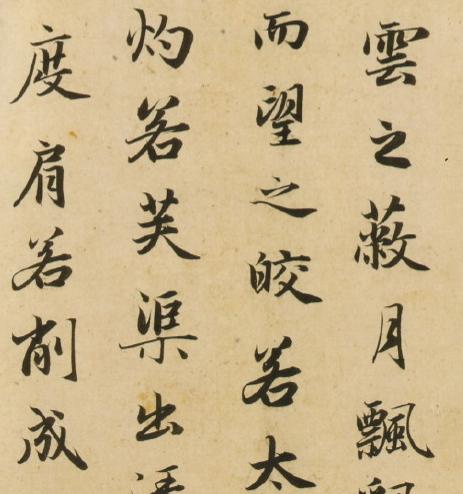 雲之蔽月飄
而望之皎若太
灼若芙渠出
度肩若削成